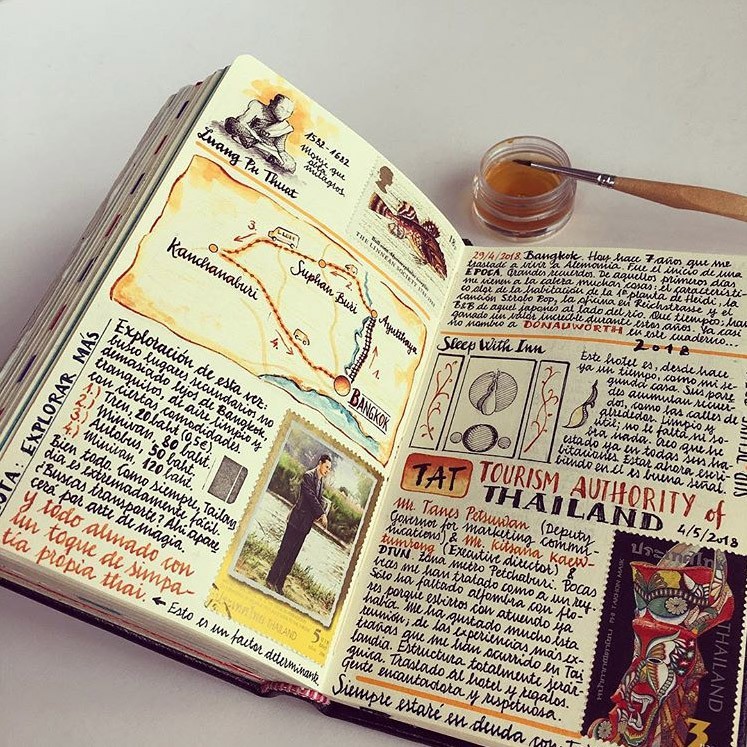 Luang Pu Thuat
1582-1682
Monje que
obra
milagros
THE LINNEAN SOCIETY
Kanchanaburi
3.
Suphan Buri
2.
Ayutthaya
1.
4.
BANGKOK
EXPLORAR MÁS
Exploración de esta vez:
busco lugares secundarios no
demasiado lejos de Bangkok,
tranquilos, de aire limpio y
con ciertas comodidades
1) Tren, 20 baht.
2) Minivan, 80 baht.
3) Autobus, 50 baht.
4) Minivan, 120 baht.
Bien todo. Como siempre, Tailan
dia es extremadamente fácil.
¿Buscas transporte? Ahí apare
cerá por arte de magia.
y todo aliñado con
un toque de simpa-
tía propia thai.
← Esto es un factor determinante
THAILAND
5
29/4/2018. Bangkok. Hoy hace 7 años que me
trasladé a vivir a Alemania. Fue el inicio de una
ÉPOCA. Grandes recuerdos. De aquellos primeros días
me vienen a la cabeza muchas cosas: el característi-
co olor de la habitación de la 1ª planta de Heidi, la
canción Scrobo Pop, la oficina en Reichstrasse y el
B&B de aquel japonés al lado del río. Que tiempo; has
ganado un valor increíble durante estos años. Ya casi
no nombro a DONAUWÖRTH en este cuaderno...
2018
Sleep With Inn
Este hotel es, desde hace
ya un tiempo, como mi se-
gunda casa. Sus pare-
des acumulan recuer-
dos, como las calles de
alrededor. Limpio y
útil; no le falta ni so-
bra nada. Creo que he
estado ya en todas sus ha-
bitaciones. Estar ahora escri-
biendo en él es buena señal.
TAT TOURISM AUTHORITY of
THAILAND
4/5/2018
Mr. Tanes Petsuwan (Deputy
Governor for marketing commu-
nications) & Mr. Kitsana Kaew-
tumrong (Executive director) &
DTUN. Zona metro Petchaburi. Pocas
veces me han tratado como a un rey.
Sólo ha faltado alfombra con flo-
res porque esbirros con atuendo ya
había. Me ha gustado mucho esta
reunión; de las experiencias más ex-
trañas que me han ocurrido en Tai
landia. Estructura totalmente jerár-
quica. Traslado al hotel y regalos.
Gente encantadora y respetuosa.
Siempre estaré en deuda con
ประเทศไทย
THAILAND
3